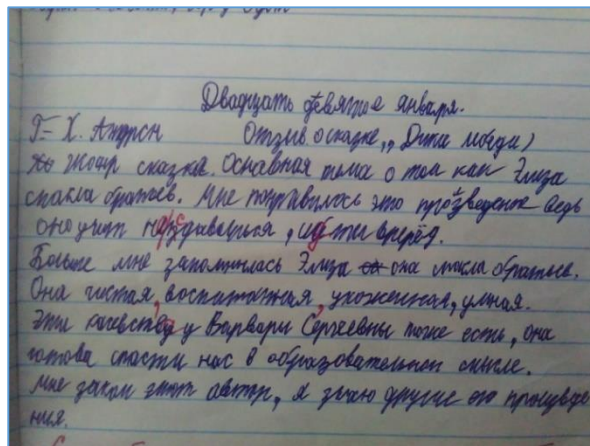 Двадцать девятое января.
Г-Х. Андрсн Отзыв о сказке „Дити лебеди)
Жанр сказка. Основная тема о том как Элиза
спасла братьев. Мне понравилось это прозведение ведь
оно учит не сдаваться, идти вперёд.
Больше мне запомнилась Элиза она спасла братьев.
Она чистая, воспитанная, ухоженная, умная.
Эти качества у Варвары Сергеевны тоже есть, она
готова спасти нас в образовательном смысле.
Мне знаком этот автор, я знаю другие его произведе
ния.